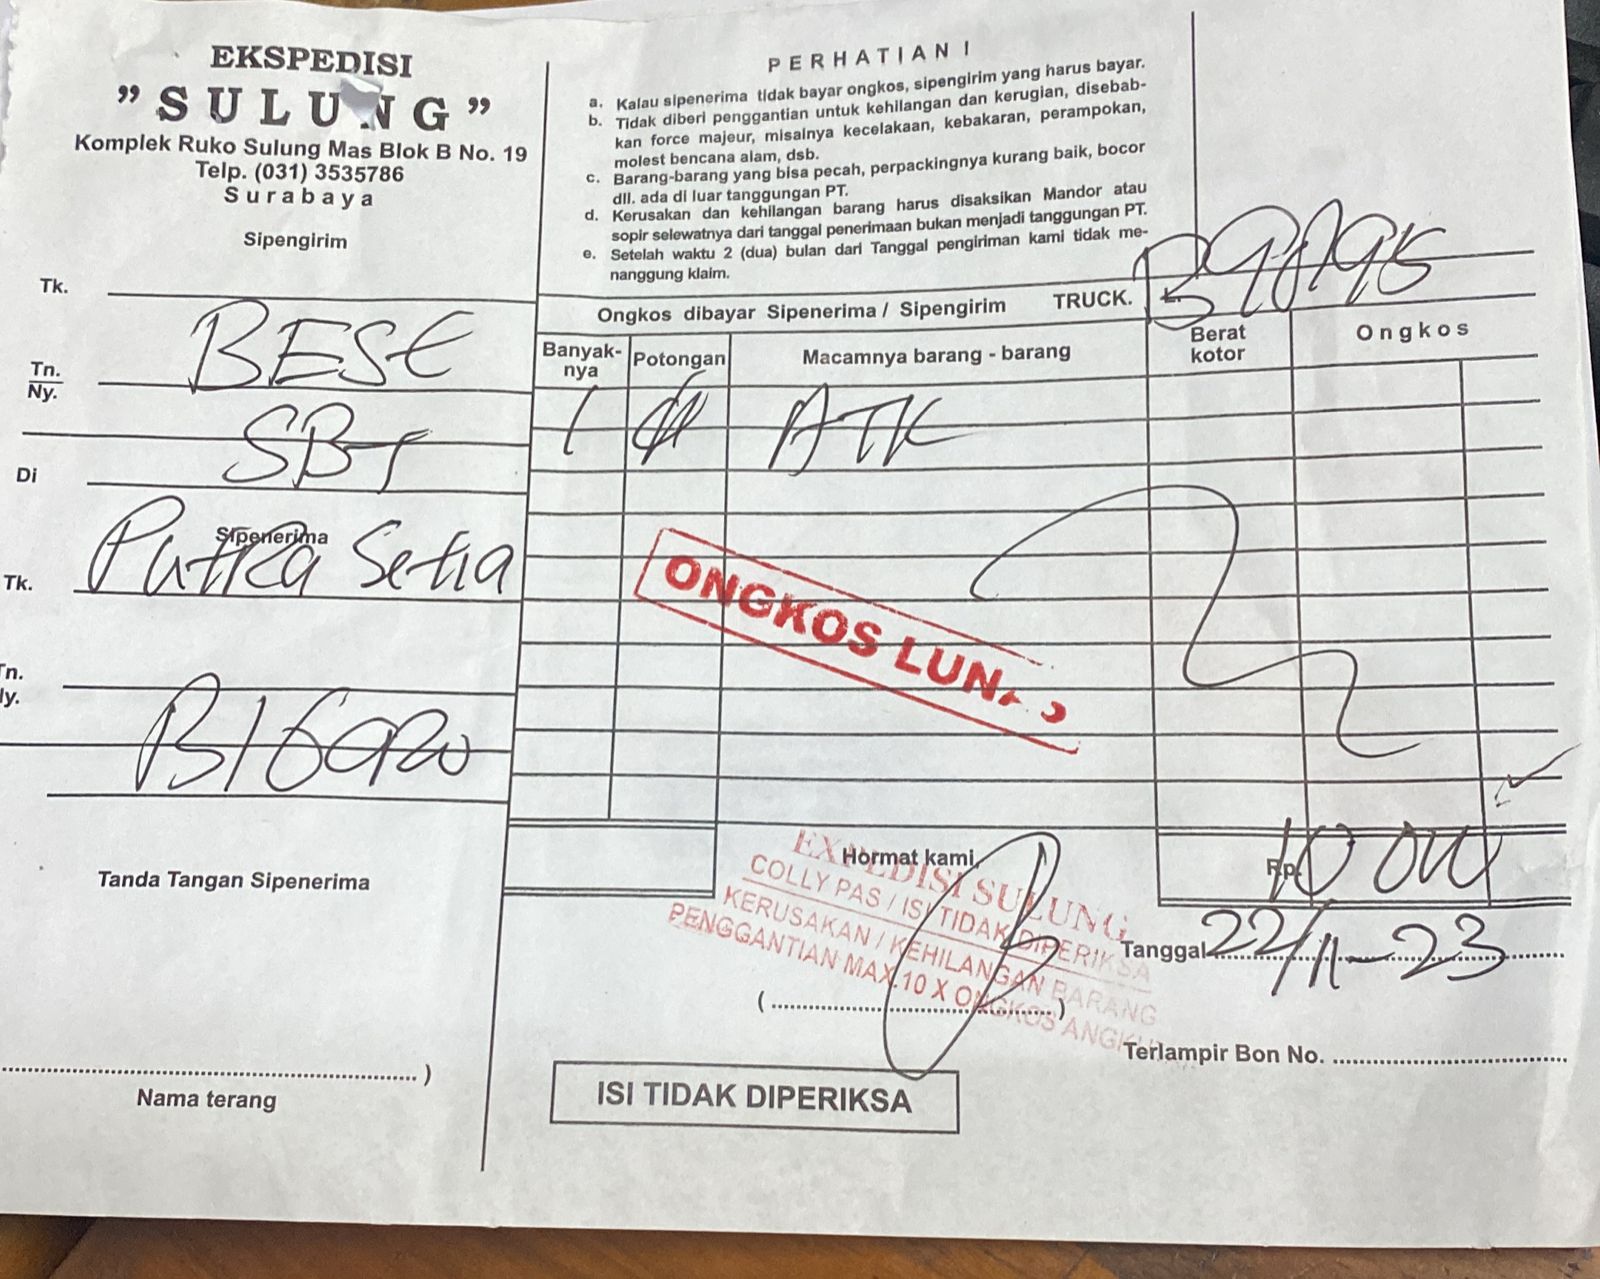 EKSPEDISI
"SULUNG"
Komplek Ruko Sulung Mas Blok B No. 19
Telp. (031) 3535786
Surabaya
Sipengirim
Tk.
Tn. BEST
Ny.
Di SBY
Sipenerima
Tk. Putra Setia
Tn.
Ny.
Blitar
Tanda Tangan Sipenerima
.......................................................... )
Nama terang
PERHATIAN !
a. Kalau sipenerima tidak bayar ongkos, sipengirim yang harus bayar.
b. Tidak diberi penggantian untuk kehilangan dan kerugian, disebab-
kan force majeur, misalnya kecelakaan, kebakaran, perampokan,
molest bencana alam, dsb.
c. Barang-barang yang bisa pecah, perpackingnya kurang baik, bocor
dll. ada di luar tanggungan PT.
d. Kerusakan dan kehilangan barang harus disaksikan Mandor atau
sopir selewatnya dari tanggal penerimaan bukan menjadi tanggungan PT.
e. Setelah waktu 2 (dua) bulan dari Tanggal pengiriman kami tidak me-
nanggung klaim.
Ongkos dibayar Sipenerima / Sipengirim TRUCK.
Banyak-
nya Potongan Macamnya barang - barang Berat
kotor Ongkos
1 ATK
ONGKOS LUNAS
Hormat kami,
Rp. 10 000
EXPEDISI SULUNG
COLLY PAS / ISI TIDAK DIPERIKSA
KERUSAKAN / KEHILANGAN BARANG
PENGGANTIAN MAX.10 X ONGKOS ANGKUT
Tanggal 22/11-23
(........................................)
Terlampir Bon No. ..................................
ISI TIDAK DIPERIKSA